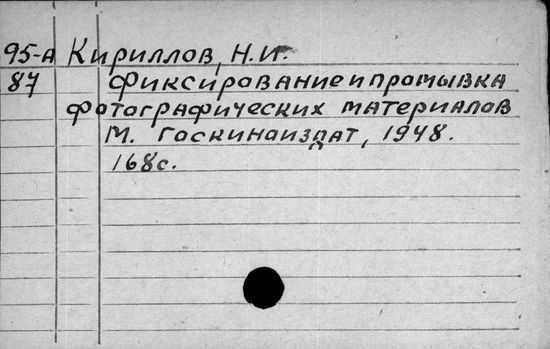 95-А Кириллов, Н.И.
87 Фиксирование и промывка
фотографических материалов
М. Госкиноиздат, 1948.
168с.